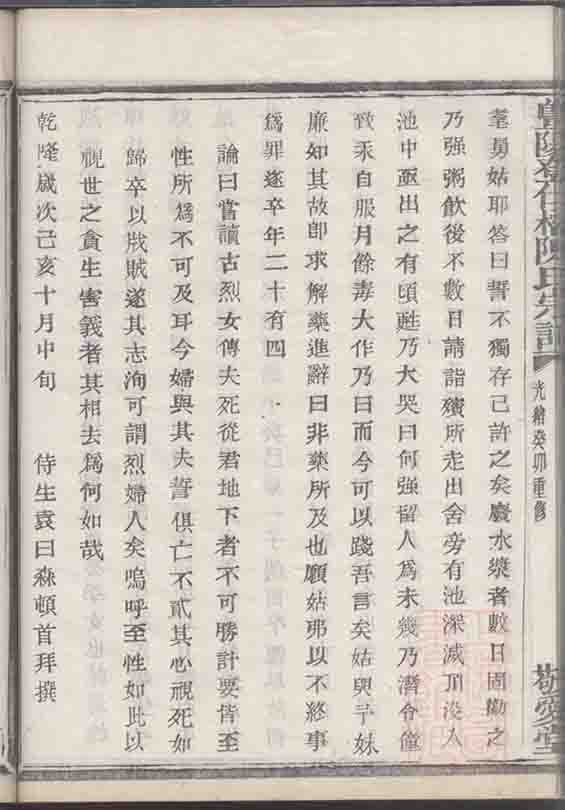 耄舅姑耶答曰誓不獨存己許之矣廢水漿者數日固勸之
乃强粥飲後不數日請詣殯所走出舍旁有池深滅頂没入
池中亟出之有頃甦乃大哭曰何强留人為未幾乃潛令僮
致汞自服月餘毒大作乃曰而今可以踐吾言矣姑與子妹
廉知其故即求解藥進辭曰非藥所及也願姑弗以不終事
爲罪遂卒年二十有四
論曰嘗讀古烈女傳夫死從君地下者不可勝計要皆至
性所爲不可及耳今婦與其夫誓俱亡不貳其心視死如
歸卒以戕賊遂其志洵可謂烈婦人矣嗚呼至性如此以
視世之貪生害義者其相去爲何如哉
乾隆歲次己亥十月中旬 侍生袁曰森頓首拜撰
陳氏宗譜
光緒癸卯重修
敬愛堂